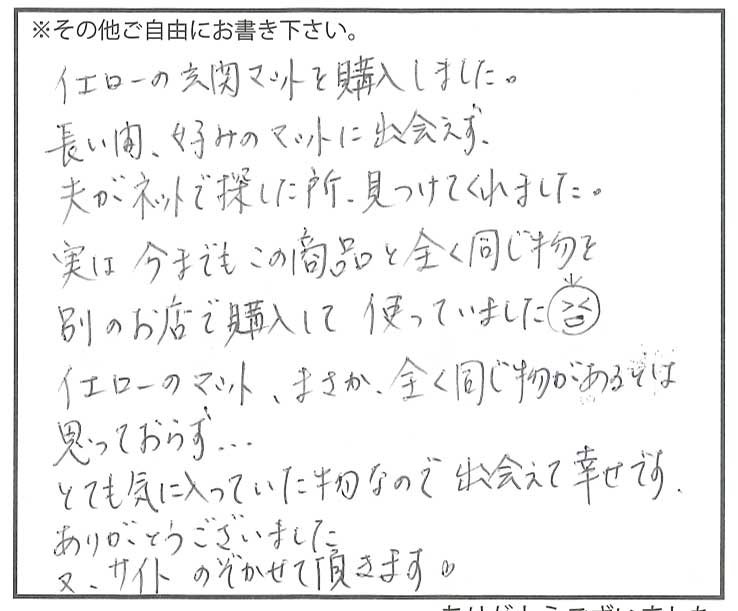 ※その他ご自由にお書き下さい。
イエローの玄関マットを購入しました。
長い間、好みのマットに出会えず、
夫がネットで探した所、見つけてくれました。
実は今までもこの商品と全く同じ物を
別のお店で購入して使っていました
イエローのマット、まさか、全く同じ物があるとは
思っておらず…
とても気に入っていた物なので出会えて幸せです。
ありがとうございました
又、サイトのぞかせて頂きます。